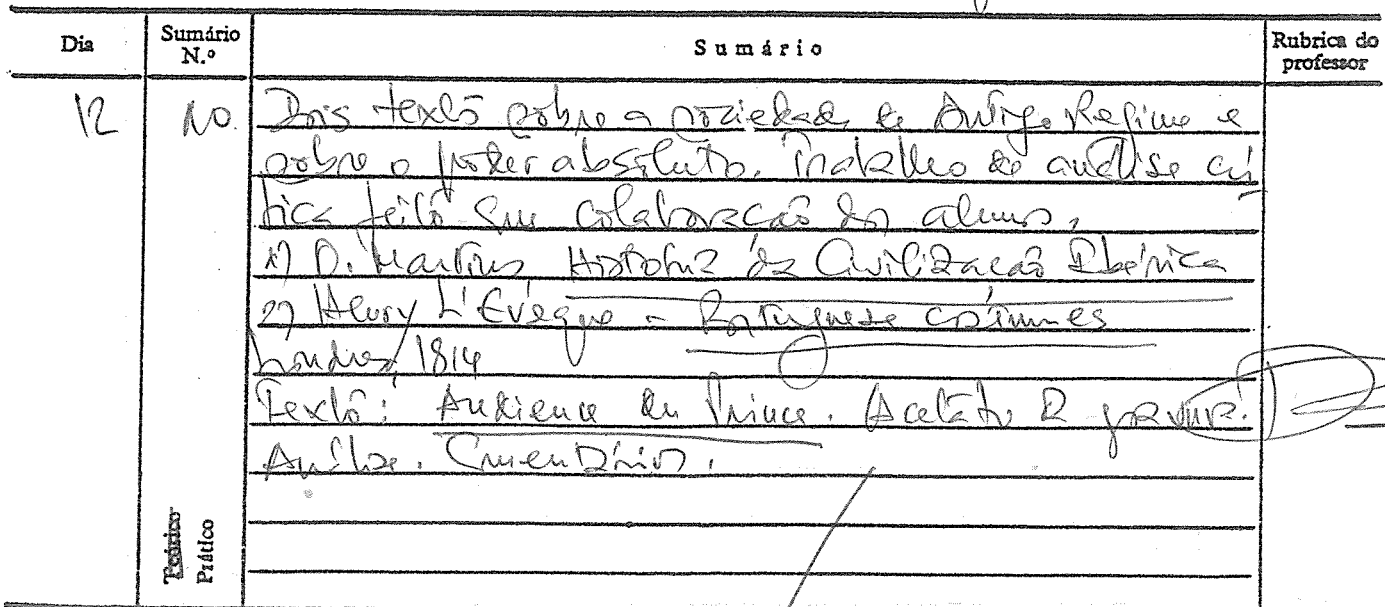 Dia
Sumário N.º
Sumário
Rubrica do professor
12
10.
Dois textos sobre a sociedade de Antigo Regime e
sobre o poder absoluto. Trabalho de análise crí
tica feito com colaboração dos alunos.
1) O. Martins História da Civilização Ibérica
2) Henry L'Evêque - Portuguese costumes
Londres, 1814
Texto: Audience du Prince. Acetato e gravura.
Análise. Comentários.
Teórico
Prático